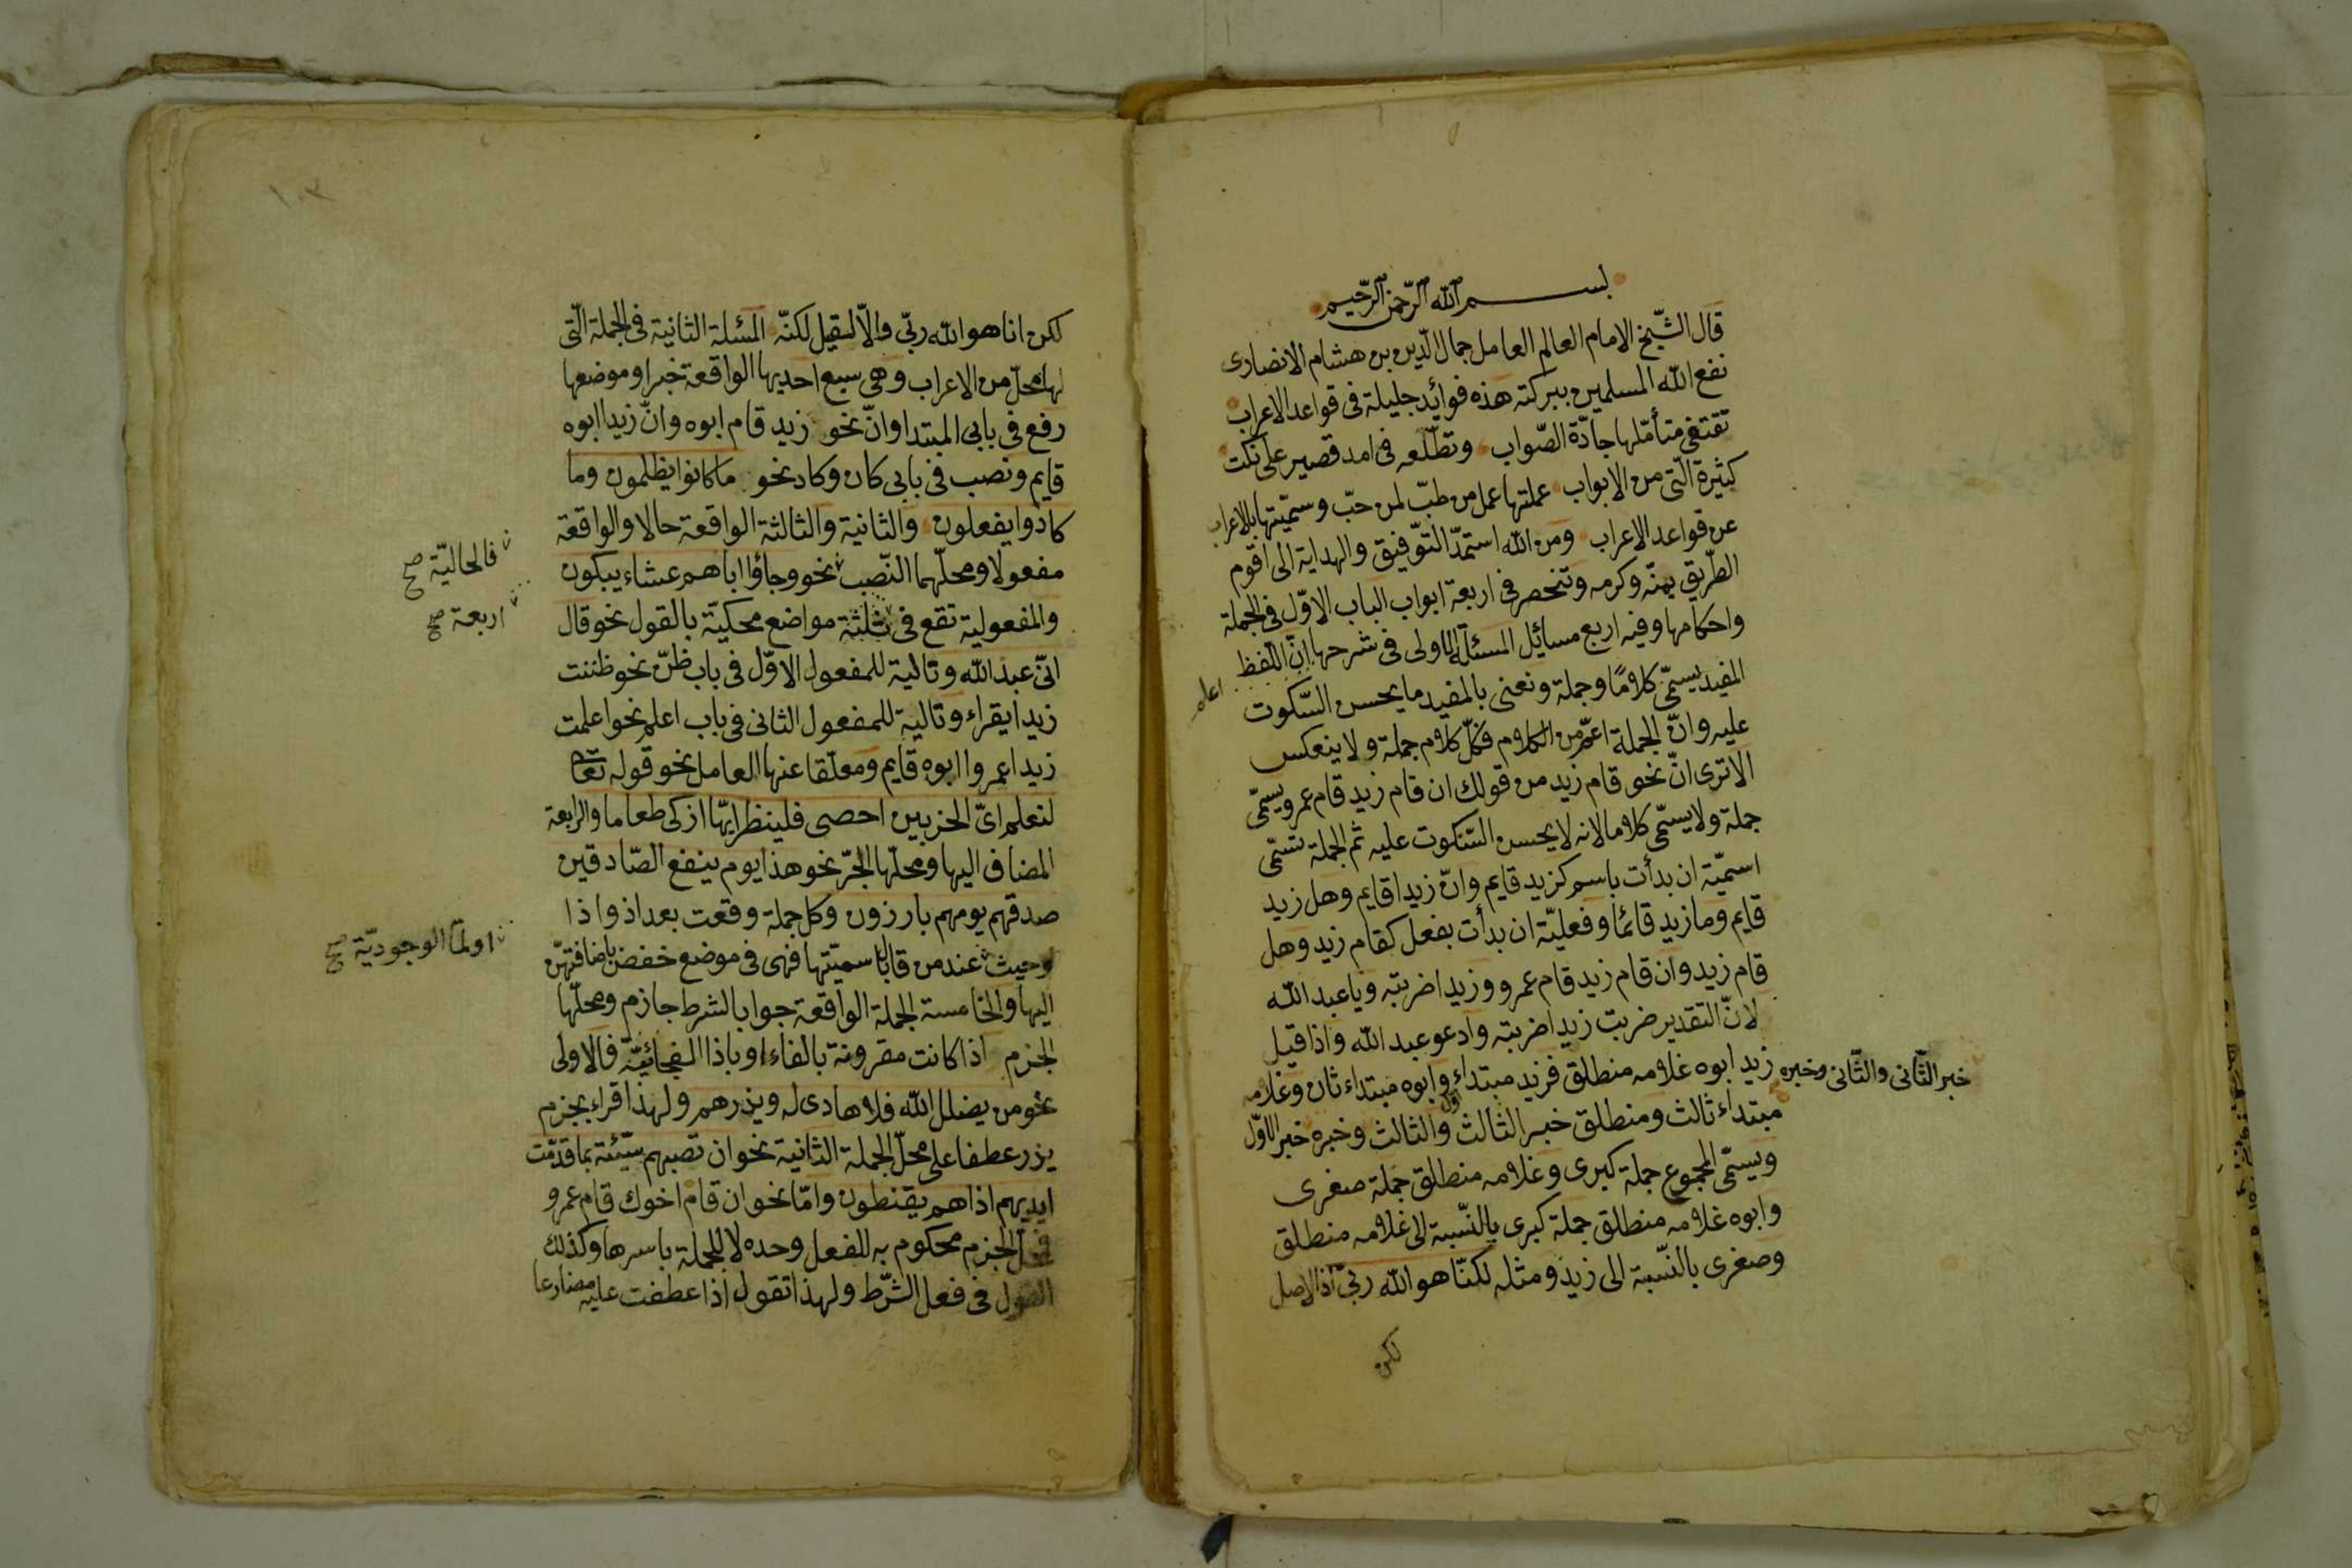 بسم الله الرّحمن الرّحيم
قال الشّيخ الامام العالم العامل جمال الدّين بن هشام الانصارى
نفع الله المسلمين ببركته هذه فوائد جليلة فى قواعد الاعراب
تقتفى متأمّلها جادّة الصّواب وتطلّعه فى امد قصير على نكت
كثيرة الّتى من الابواب عملتها عمل من طبّ لمن حبّ وسمّيتها بالاعراب
عن قواعد الاعراب ومن الله استمدّ التّوفيق والهداية الى اقوم
الطّريق بمنّه وكرمه وتنحصر فى اربعة ابواب الباب الاوّل فى الجملة
واحكامها وفيه اربع مسائل المسئلة الاولى فى شرحها انّ اللّفظ
اعلم
المفيد يسمّى كلامًا وجملة ونعنى بالمفيد ما يحسن السّكوت
عليه وانّ الجملة اعمّ من الكلام فكلّ كلام جملة ولا ينعكس
الا ترى انّ نحو قام زيد من قولك ان قام زيد قام عمرو يسمّى
جملة ولا يسمّى كلاما لانه لا يحسن السّكوت عليه ثم الجملة تسمّى
اسميّة ان بدأت باسم كزيد قايم وانّ زيدا قايم وهل زيد
قايم وما زيد قائما وفعليّة ان بدأت بفعل كقام زيد وهل
قام زيد وان قام زيد قام عمرو وزيدا ضربته ويا عبد الله
لانّ التقدير ضربت زيدا ضربته وادعو عبد الله واذا قيل
زيد ابوه غلامه منطلق فزيد مبتداء اوّل وابوه مبتداء ثان وغلامه
خبر الثّانى والثّانى وخبره
مبتداء ثالث ومنطلق خبر الثالث والثالث وخبره خبر الاوّل
ويسمّى المجموع جملة كبرى وغلامه منطلق جملة صغرى
وابوه غلامه منطلق جملة كبرى بالنّسبة الى غلامه منطلق
وصغرى بالنّسبة الى زيد ومثله لكنّا هو الله ربّى اذ الاصل
لكن
١٠٣
لكن انا هو الله ربّى والّا لقيل لكنّه المسئلة الثانية فى الجملة الّتى
لها محلّ من الاعراب وهى سبع احديها الواقعة خبرا وموضعها
رفع فى بابى المبتدا وانّ نحو زيد قام ابوه وانّ زيدا ابوه
قايم ونصب فى بابى كان وكاد نحو ما كانوا يظلمون وما
كادوا يفعلون والثانية والثالثة الواقعة حالا والواقعة
مفعولا ومحلّهما النّصب نحو وجاؤا اباهم عشاء يبكون
فالحاليّة صح
والمفعولية تقع فى ثلثة مواضع محكيّة بالقول نحو قال
اربعة صح
انّى عبد الله وتالية للمفعول الاوّل فى باب ظنّ نحو ظننت
زيدا يقراء وتالية للمفعول الثانى فى باب اعلم نحو اعلمت
زيدا عمروا ابوه قايم ومعلّقا عنها العامل نحو قوله تعا
لنعلم اىّ الحزبين احصى فلينظر ايّها ازكى طعاما والرابعة
المضاف اليها ومحلّها الجرّ نحو هذا يوم ينفع الصّادقين
صدقهم يوم هم بارزون وكل جملة وقعت بعد اذ واذا
وحيث عند من قال باسميّتها فهى فى موضع خفض باضافتهنّ
او لمّا الوجوديّة صح
اليها والخامسة الجملة الواقعة جوابا لشرط جازم ومحلّها
الجزم اذا كانت مقرونة بالفاء او باذا المفجائيّة فالاولى
نحو من يضلل الله فلا هادى له ويذرهم ولهذا قراء بجزم
يذر عطفا على محلّ الجملة الثانية نحو ان تصبهم سيّئة بما قدّمت
ايديهم اذا هم يقنطون وامّا نحو ان قام اخوك قام عمرو
فمحلّ الجزم محكوم به للفعل وحده لا للجملة باسرها وكذلك
القول فى فعل الشّرط ولهذا تقول اذا عطفت عليه مضارعا